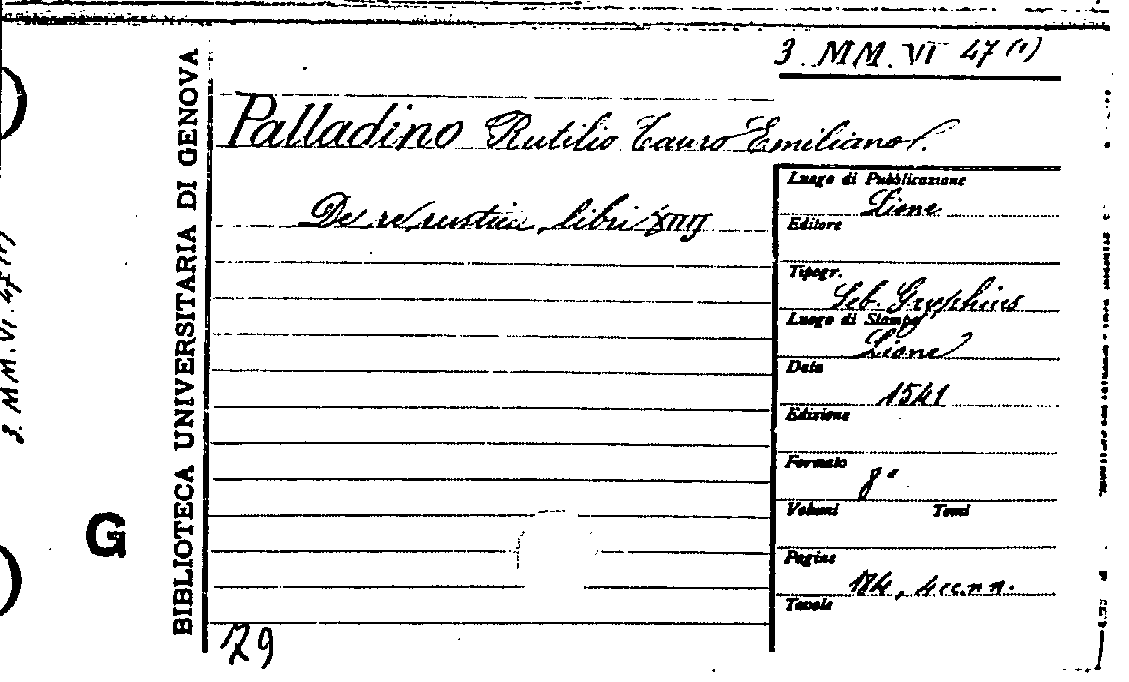 3. MM. VI 47 (1)
Palladino Rutilio Tauro Emiliano.
De re rustica, libri XIIII
Luogo di Pubblicazione
Lione
Editore
Tipogr.
Seb. Gryphius
Luogo di Stampa
Lione
Data
1541
Edizione
Formato
8°
Volumi Tomi
Pagine
184, 4 cc. n. n.
Tavole
79
BIBLIOTECA UNIVERSITARIA DI GENOVA
G
3. MM. VI. 47 (1)